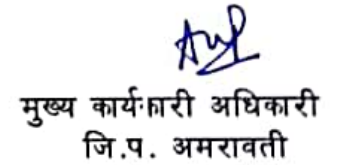 मुख्य कार्यकारी अधिकारी
जि.प. अमरावती